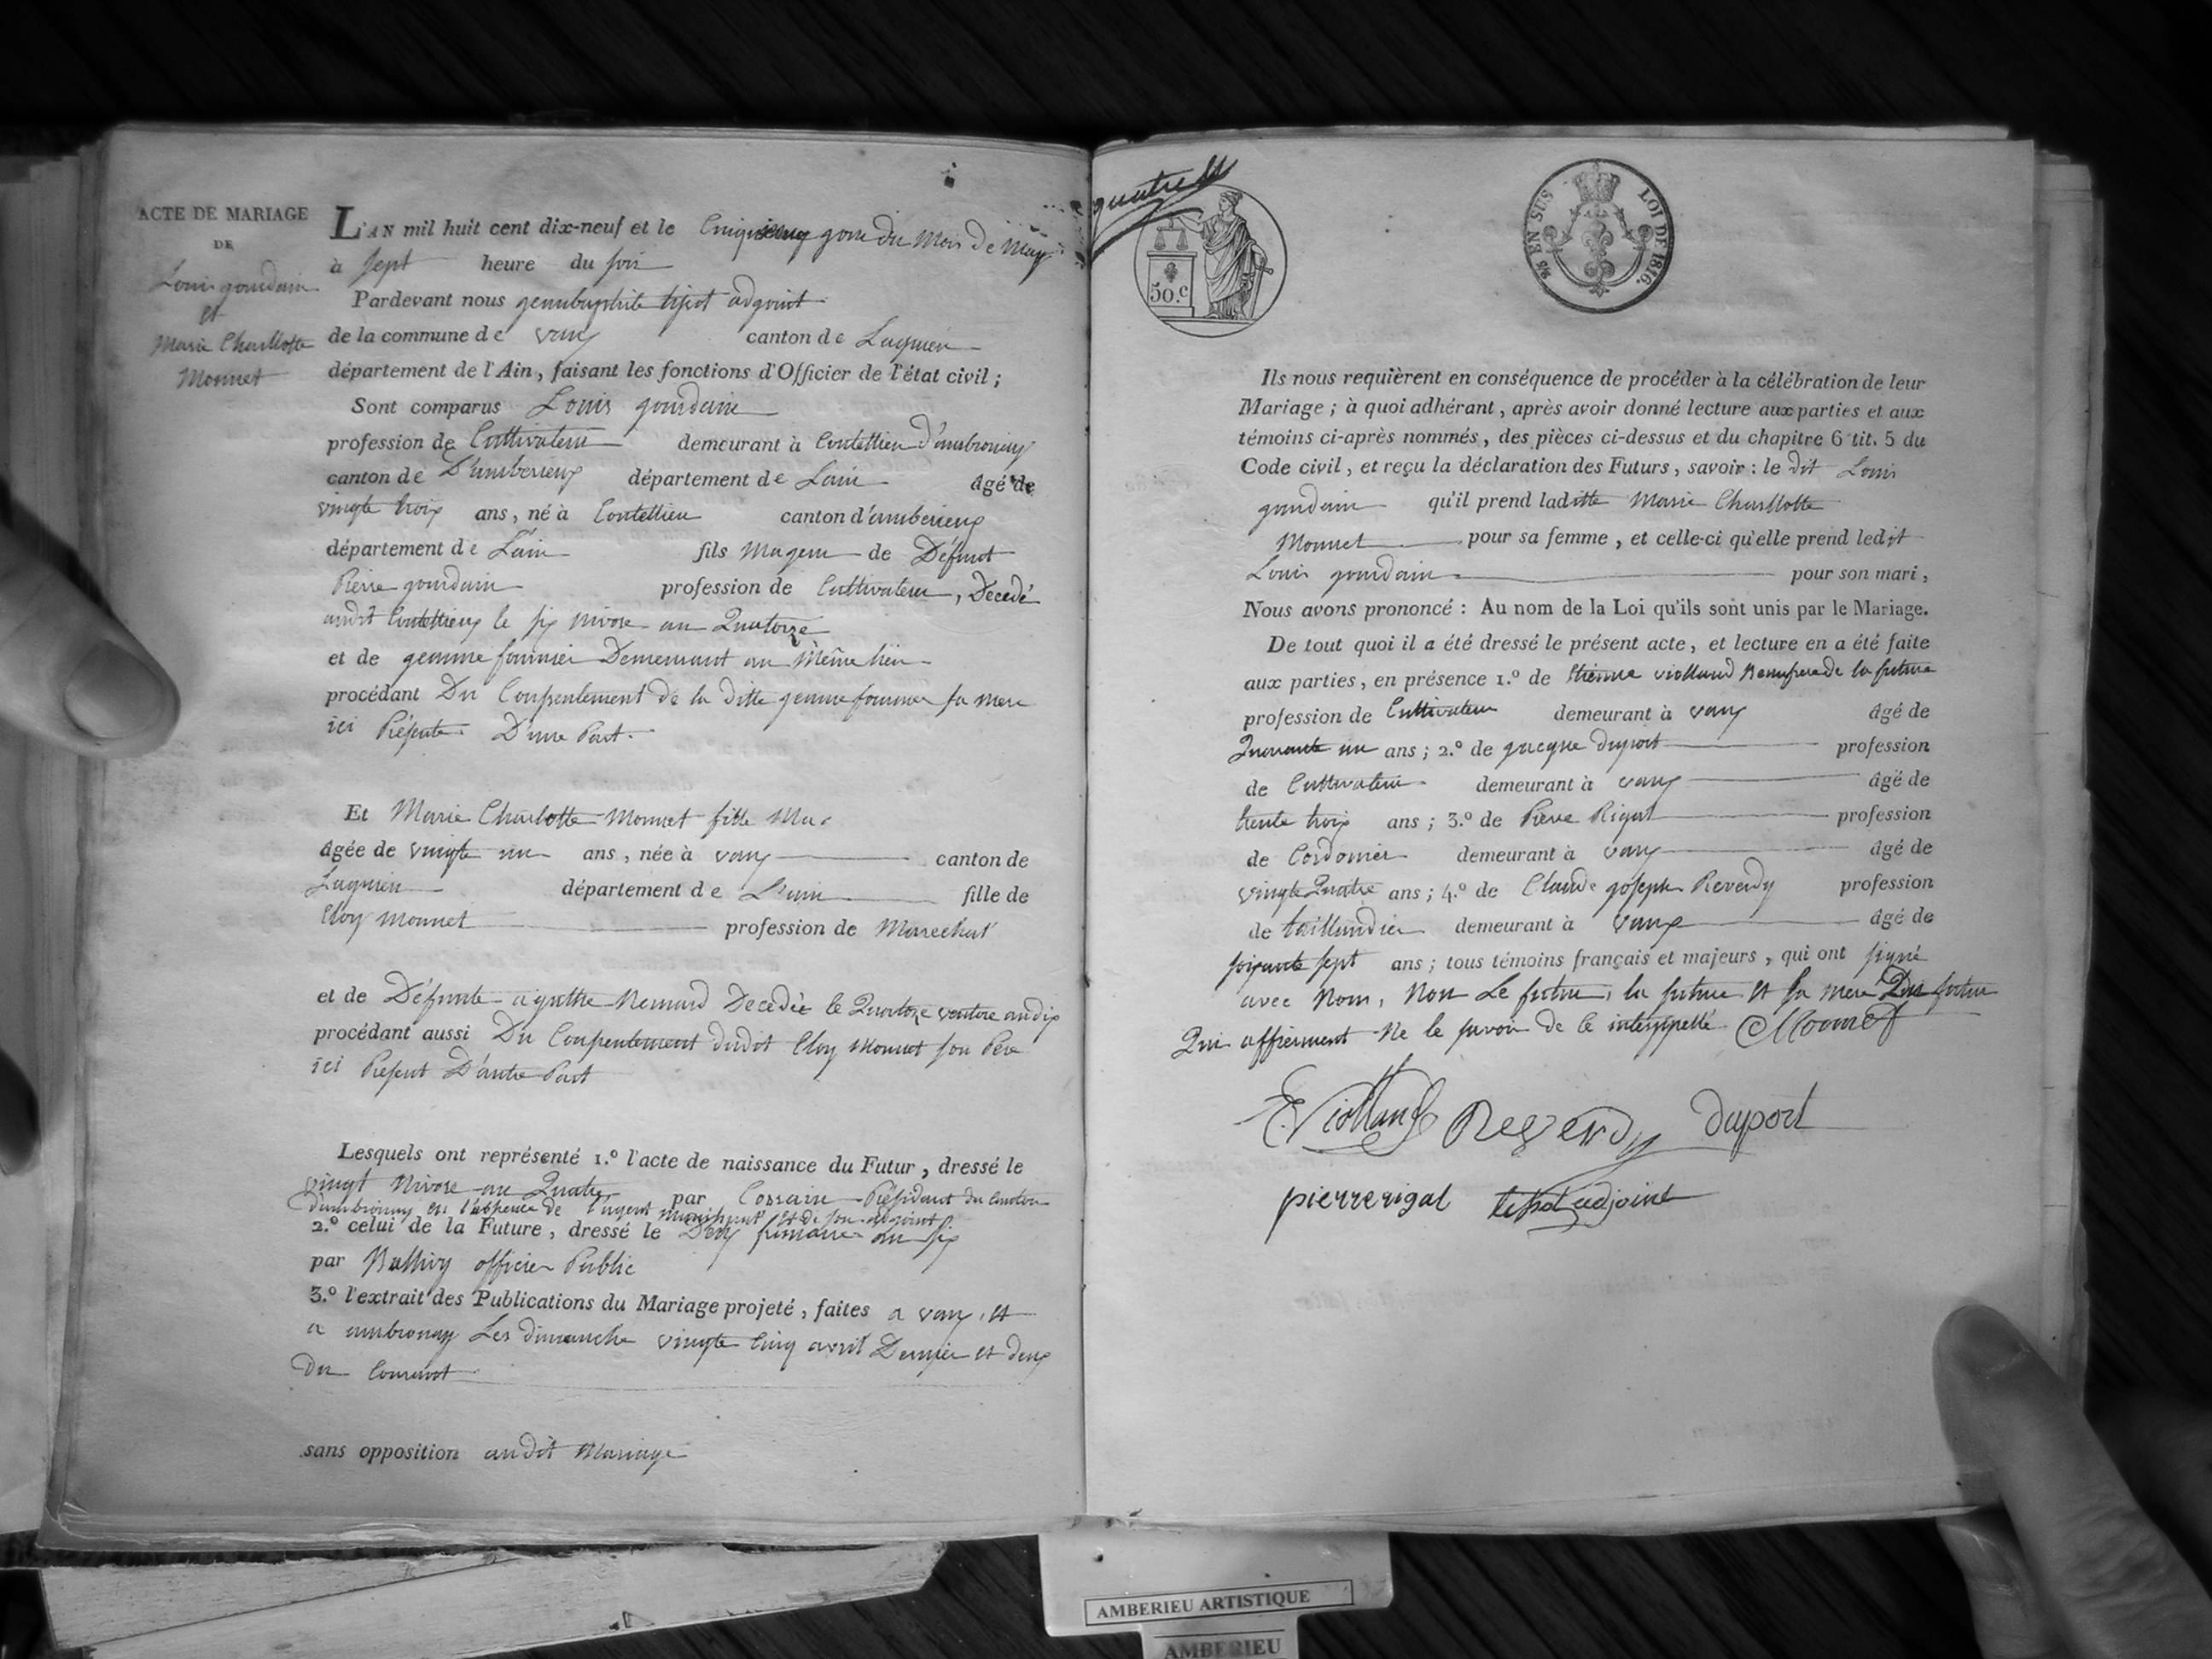 ACTE DE MARIAGE
DE
Louis gourdain
et
Marie Charllotte
Monnet
L'AN mil huit cent dix-neuf et le Cinquieme jour du Mois de May
à sept heure du soir
Pardevant nous adjoint
de la commune de vaux canton de Lagnieu
département de l'Ain, faisant les fonctions d'Officier de l'état civil ;
Sont comparus Louis gourdain
profession de Cultivateur demeurant à Coutellieu d'ambronay
canton de D'amberieux département de Lain âgé de
vingte trois ans, né à Coutellieu canton d'amberieux
département de L'ain fils Mageur de Défunt
Pierre gourdain profession de Cultivateur, Decedé
audit le six nivose an Quatorze
et de geanne fournier Demeurant au Même lieu
procédant Du Consentement de la ditte geanne fournier sa mere
ici Présente D'une Part.
Et Marie Charlotte Monnet fille
âgée de vingte un ans, née à vaux canton de
Lagnieu département de L'ain fille de
Eloy Monnet profession de Marechal
et de Défunte agathe Renard Decedée le Quatorze ventose an dix
procédant aussi Du Consentement dudit Eloy Monnet son Pere
ici Présent D'autre Part
Lesquels ont représenté 1.º l'acte de naissance du Futur, dressé le
vingt Nivose an Quatre par Président du canton
D'ambronay en l'absence de l'agent municipal et de son adjoint
2.º celui de la Future, dressé le Deux frimaire an six
par officier Public
3.º l'extrait des Publications du Mariage projeté, faites a vaux, et
a ambronay Les dimanche vingte cinq avril Dernier et deux
Du Courant
sans opposition audit Mariage
50.c
EN SUS LOI DE 1816.
Ils nous requièrent en conséquence de procéder à la célébration de leur
Mariage ; à quoi adhérant, après avoir donné lecture aux parties et aux
témoins ci-après nommés, des pièces ci-dessus et du chapitre 6 tit. 5 du
Code civil, et reçu la déclaration des Futurs, savoir : le dit Louis
gourdain qu'il prend laditte Marie Charllotte
Monnet pour sa femme, et celle-ci qu'elle prend ledit
Louis gourdain pour son mari,
Nous avons prononcé : Au nom de la Loi qu'ils sont unis par le Mariage.
De tout quoi il a été dressé le présent acte, et lecture en a été faite
aux parties, en présence 1.º de Etienne violland Beaufrere de la future
profession de Cultivateur demeurant à vaux âgé de
Quarante un ans ; 2.º de jacque duport profession
de Cultivateur demeurant à vaux âgé de
trente trois ans ; 3.º de Pierre Rigal profession
de Cordonier demeurant à vaux âgé de
vingte Quatre ans ; 4.º de Claude joseph Reverdy profession
de taillandier demeurant à vaux âgé de
soixante sept ans ; tous témoins français et majeurs, qui ont signé
avec Nous, Non Le futur, la future et sa mere Du futur
Qui affirment Ne le savoir de ce interppellé Monnet
E. Violland Reverdy duport
pierre rigal adjoint
AMBERIEU ARTISTIQUE
AMBERIEU